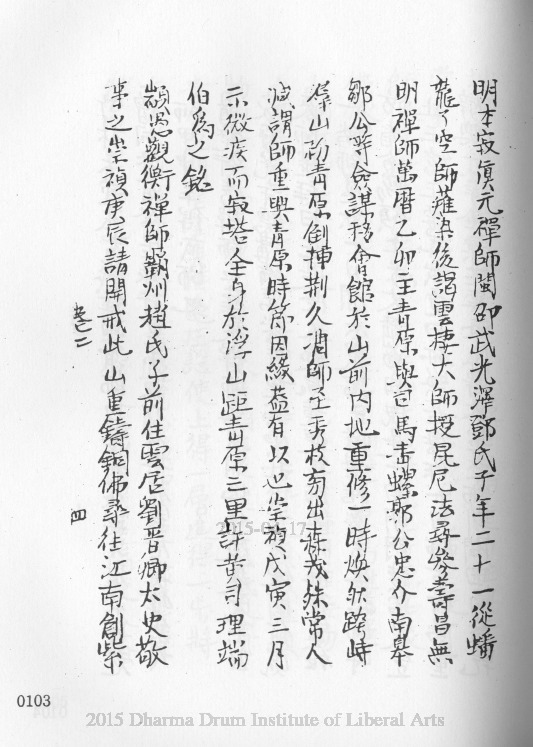 明本寂真元禪師閩邵武光澤鄧氏子年二十一從蟠
龍了空師薙染後謁雲棲大師授毘尼法尋參壽昌無
明禪師萬曆乙卯主青原與司馬青螺郭公忠介南皋
鄒公等僉謀移會館於山前內地重修一時煥然跨峙
山初青原倒插荆久凋師至旁枝旁出森茂殊常人
咸謂師重興青原時節因緣葢有以也崇禎戊寅三月
示微疾而寂塔全身於浮山距青原三里許葉司理端
伯為之銘
顓愚觀衡禪師霸州趙氏子前住雲居劉晉卿太史敬
事之崇禎庚辰請開戒此山重鑄銅佛尋往江南創紫
卷之二
四
2015-04-17
0103
2015 Dharma Drum Institute of Liberal Arts